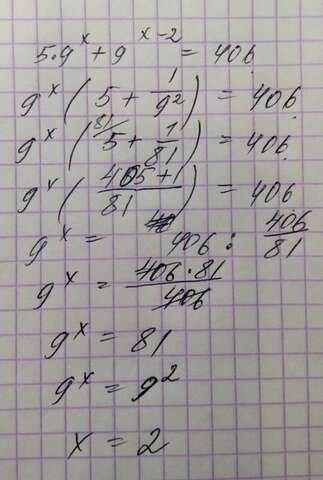 5·9^x + 9^(x-2) = 406
9^x (5 + 1/9²) = 406
9^x (81/5 + 1/81) = 406
9^x ((405+1)/81) = 406
9^x = 406 : 406/81
9^x = (406·81)/406
9^x = 81
9^x = 9²
x = 2